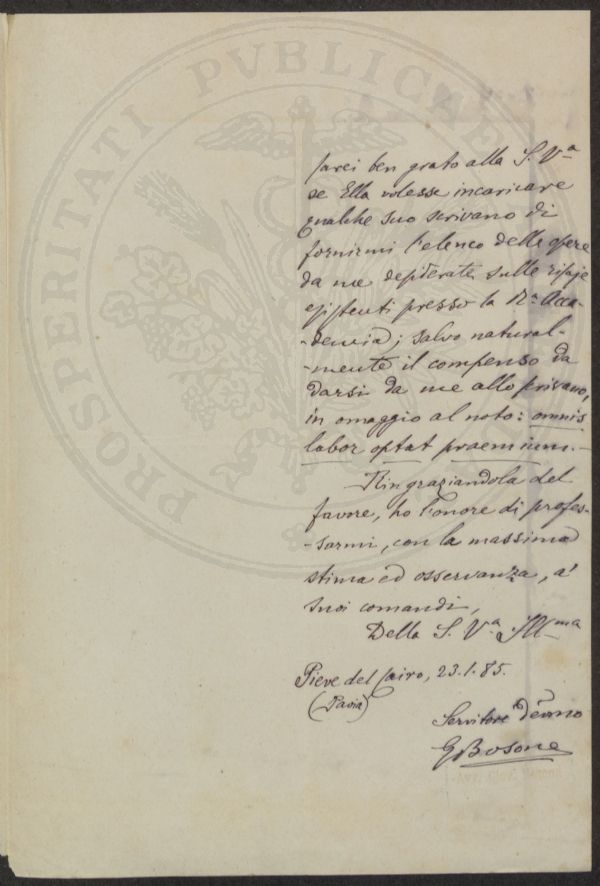 PROSPERITATI PVBLICAE
sarei ben grato alla S. Vª
se Ella volesse incaricare
qualche suo scrivano di
fornirmi l'elenco delle opere
da me desiderate sulle risaje
esistenti presso la R. Acca-
-demia; salvo natural-
-mente il compenso da
darsi da me allo scrivano,
in omaggio al noto: omnis
labor optat praemium.-
Ringraziandola del
favore, ho l'onore di profes-
-sarmi, con la massima
stima ed osservanza, a'
suoi comandi,
Della S. V.ª Ill.ma
Pieve del Cairo, 23.1.85.
(Pavia)
Servitore dev.mo
G Bosone